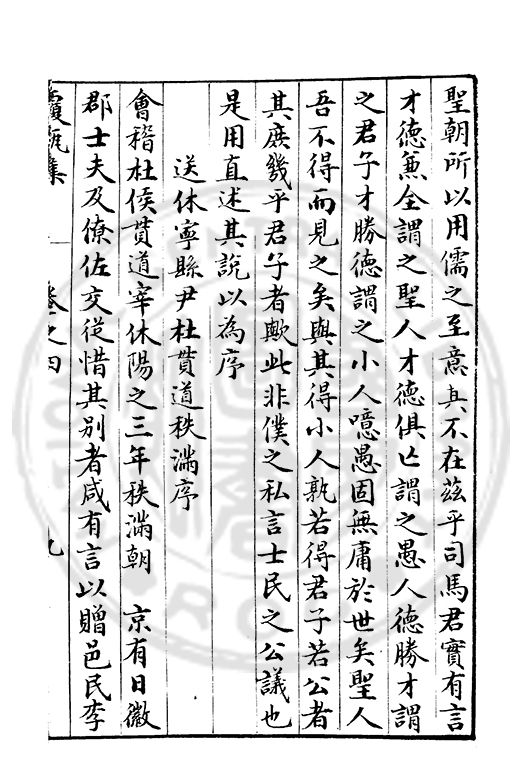 聖朝所以用儒之至意其不在茲乎司馬君實有言
才德兼全謂之聖人才德俱亡謂之愚人德勝才謂
之君子才勝德謂之小人噫愚固無庸於世矣聖人
吾不得而見之矣與其得小人孰若得君子若公者
其庶幾乎君子者歟此非僕之私言士民之公議也
是用直述其說以為序
送休寧縣尹杜貫道秩滿序
會稽杜侯貫道宰休陽之三年秩滿朝 京有日徽
郡士夫及僚佐交從惜其別者咸有言以贈邑民李
集 卷之四 九